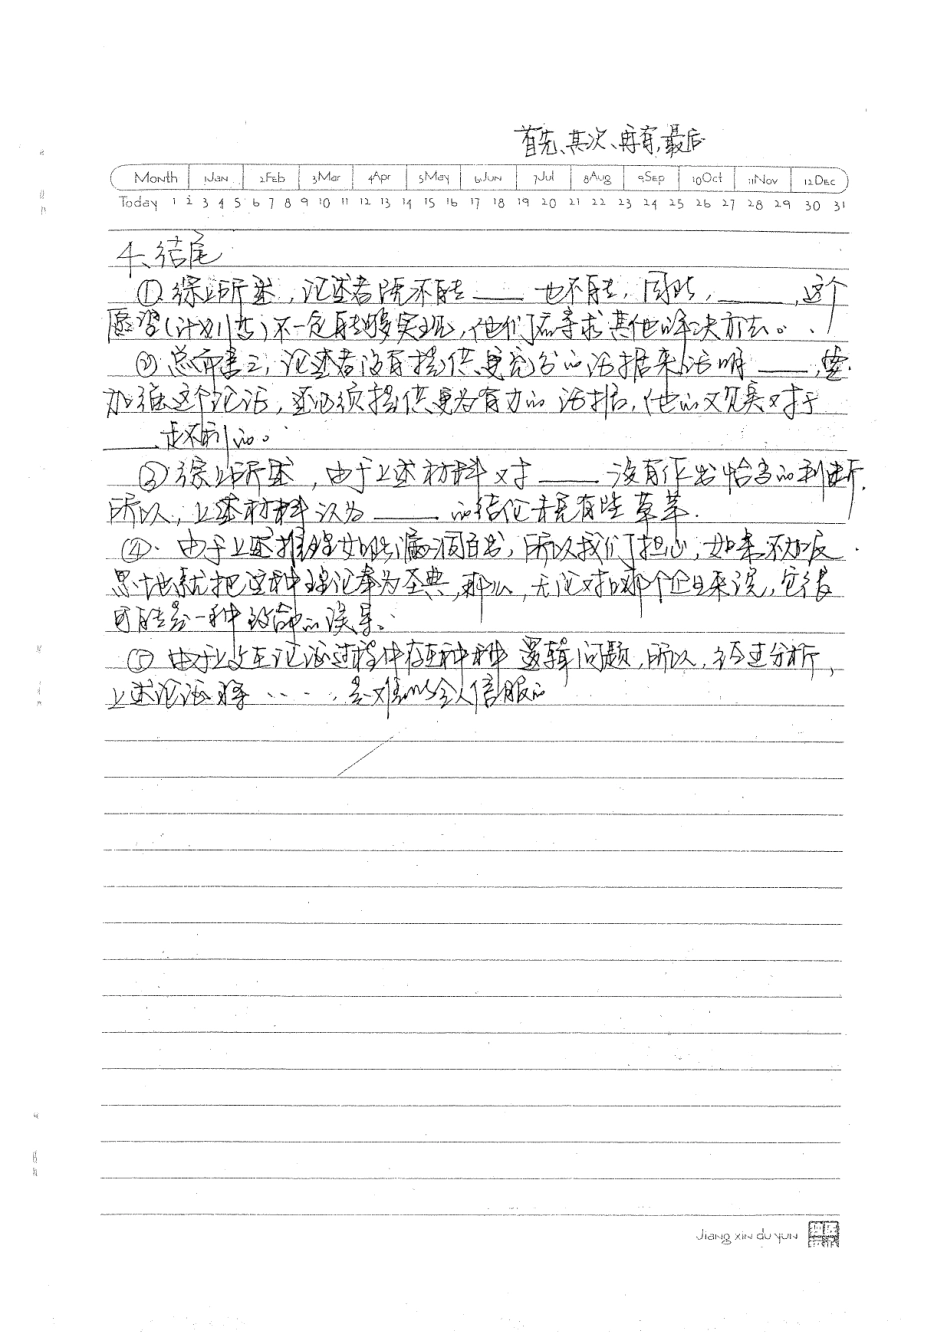 首先、其次、再有、最后
Month 1Jan 2Feb 3Mar 4Apr 5May 6Jun 7Jul 8Aug 9Sep 10Oct 11Nov 12Dec
Today 1 2 3 4 5 6 7 8 9 10 11 12 13 14 15 16 17 18 19 20 21 22 23 24 25 26 27 28 29 30 31
4、结尾
①综上所述，论述者既不能____也不能，因此，____，这个
愿望(计划书)不一定能够实现，他们应寻求其他的解决方法。
②总而言之，论述者没有提供更充分的论据来证明____，要
加强这个论证，还必须提供更为有力的证据，他的文见其对于
____是不利的。
③综上所述，由于上述材料对____没有作出恰当的判断，
所以，上述材料认为____的结论未免有些草率.
④、由于上述推理如此漏洞百出，所以我们担心，如果不加反
思地就把这种理论奉为圣典，那么，无论对哪个企业来说，它很
可能会一种致命的误导。
⑤由于上文在论证过程中存在种种逻辑问题，所以，经过分析，
上述论证将……是难以令人信服的
Jiang xin du yun